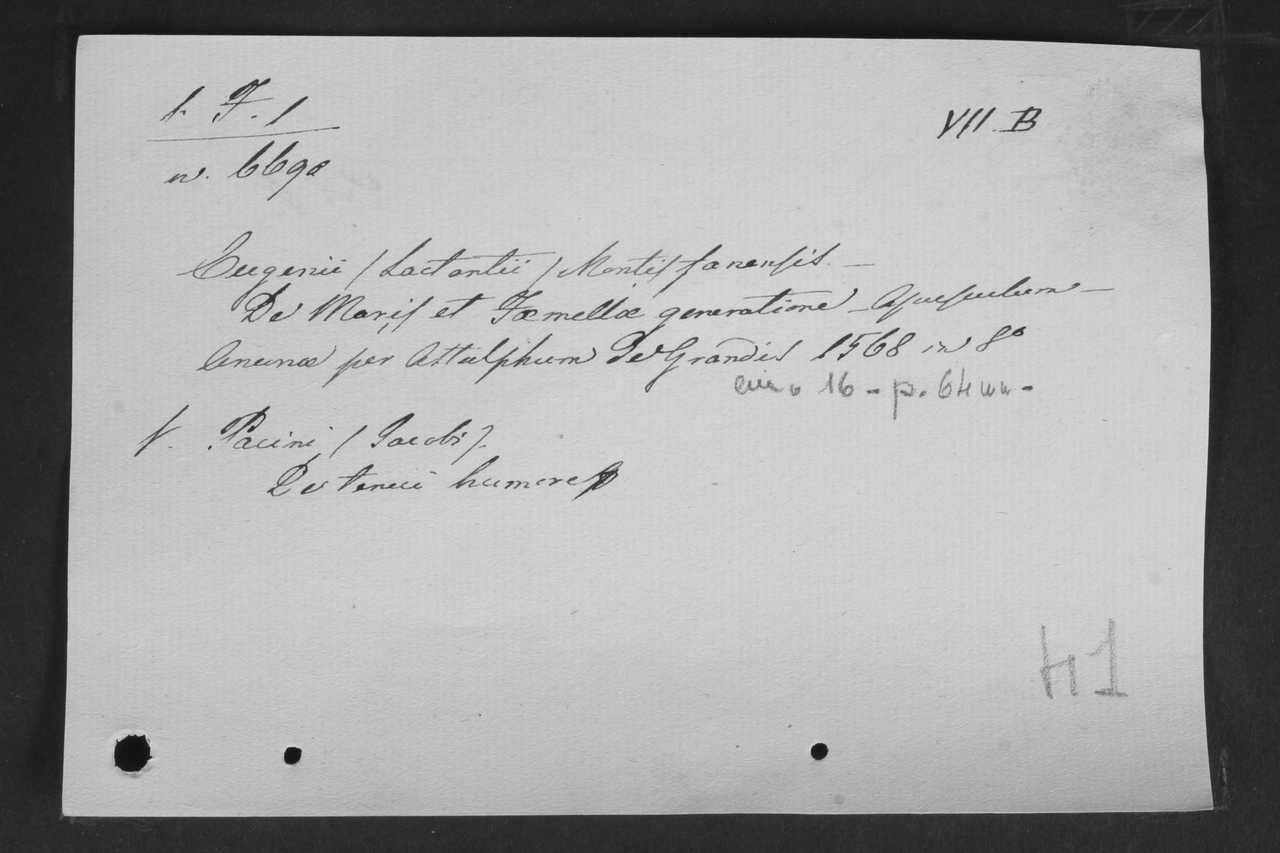 l. F. 1
VII. B
n. 669
Eugenii (Lactantii) Montisfanensis. —
De Maris et Fœmellæ generatione — Opusculum —
Anconæ per Astulphum De Grandis 1568 in 8°
16 - p. 64 nn -
V. Pacini (Jacobi).
De tenui humore
41